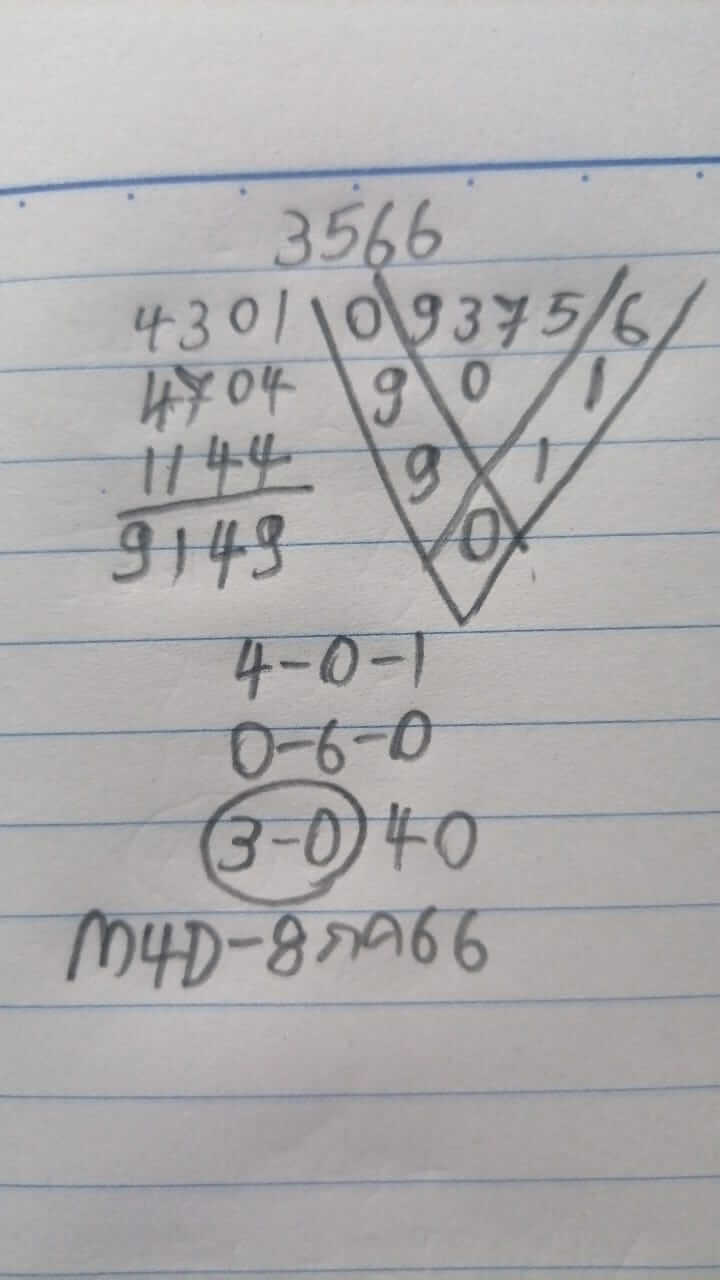 3566
4301 0 9375 6
4704 9 0 1
1144 9 1
9149 0
4-0-1
0-6-0
3-0 40
M4D-8กค66